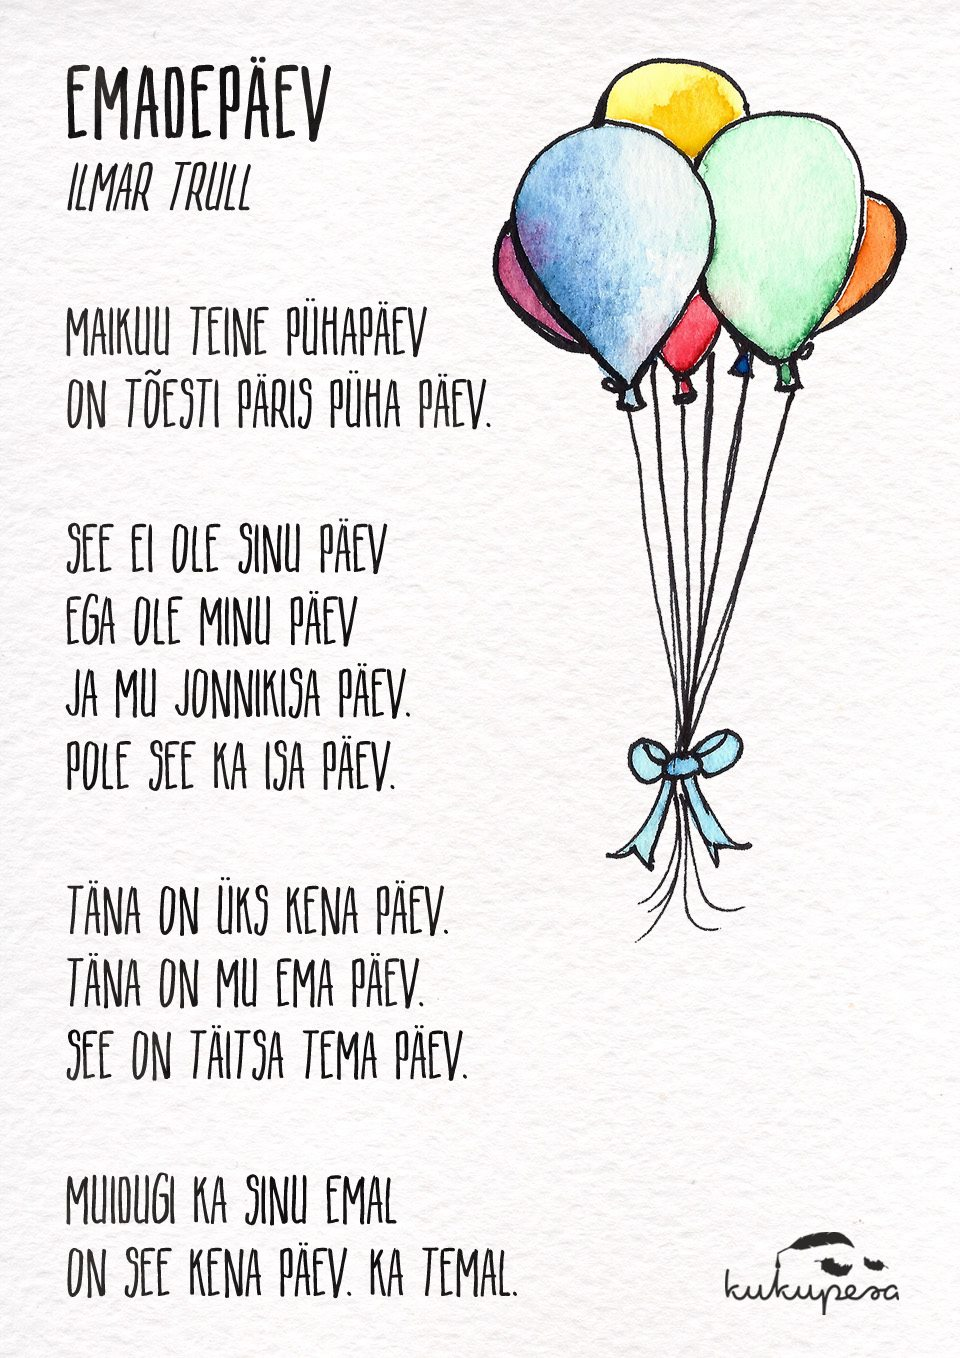 EMADEPÄEV
ILMAR TRULL
MAIKUU TEINE PÜHAPÄEV
ON TÕESTI PÄRIS PÜHA PÄEV.
SEE EI OLE SINU PÄEV
EGA OLE MINU PÄEV
JA MU JONNIKISA PÄEV.
POLE SEE KA ISA PÄEV.
TÄNA ON ÜKS KENA PÄEV.
TÄNA ON MU EMA PÄEV.
SEE ON TÄITSA TEMA PÄEV.
MUIDUGI KA SINU EMAL
ON SEE KENA PÄEV. KA TEMAL.
kukupesa